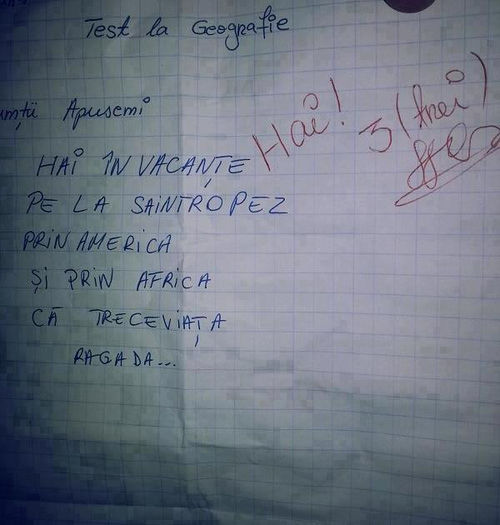 Test la Geografie
Apuseni
Hai! 3 (trei)
HAI ÎN VACANȚE
PE LA SAINTROPEZ
PRIN AMERICA
ȘI PRIN AFRICA
CĂ TRECEVIAȚA
RAGADA...